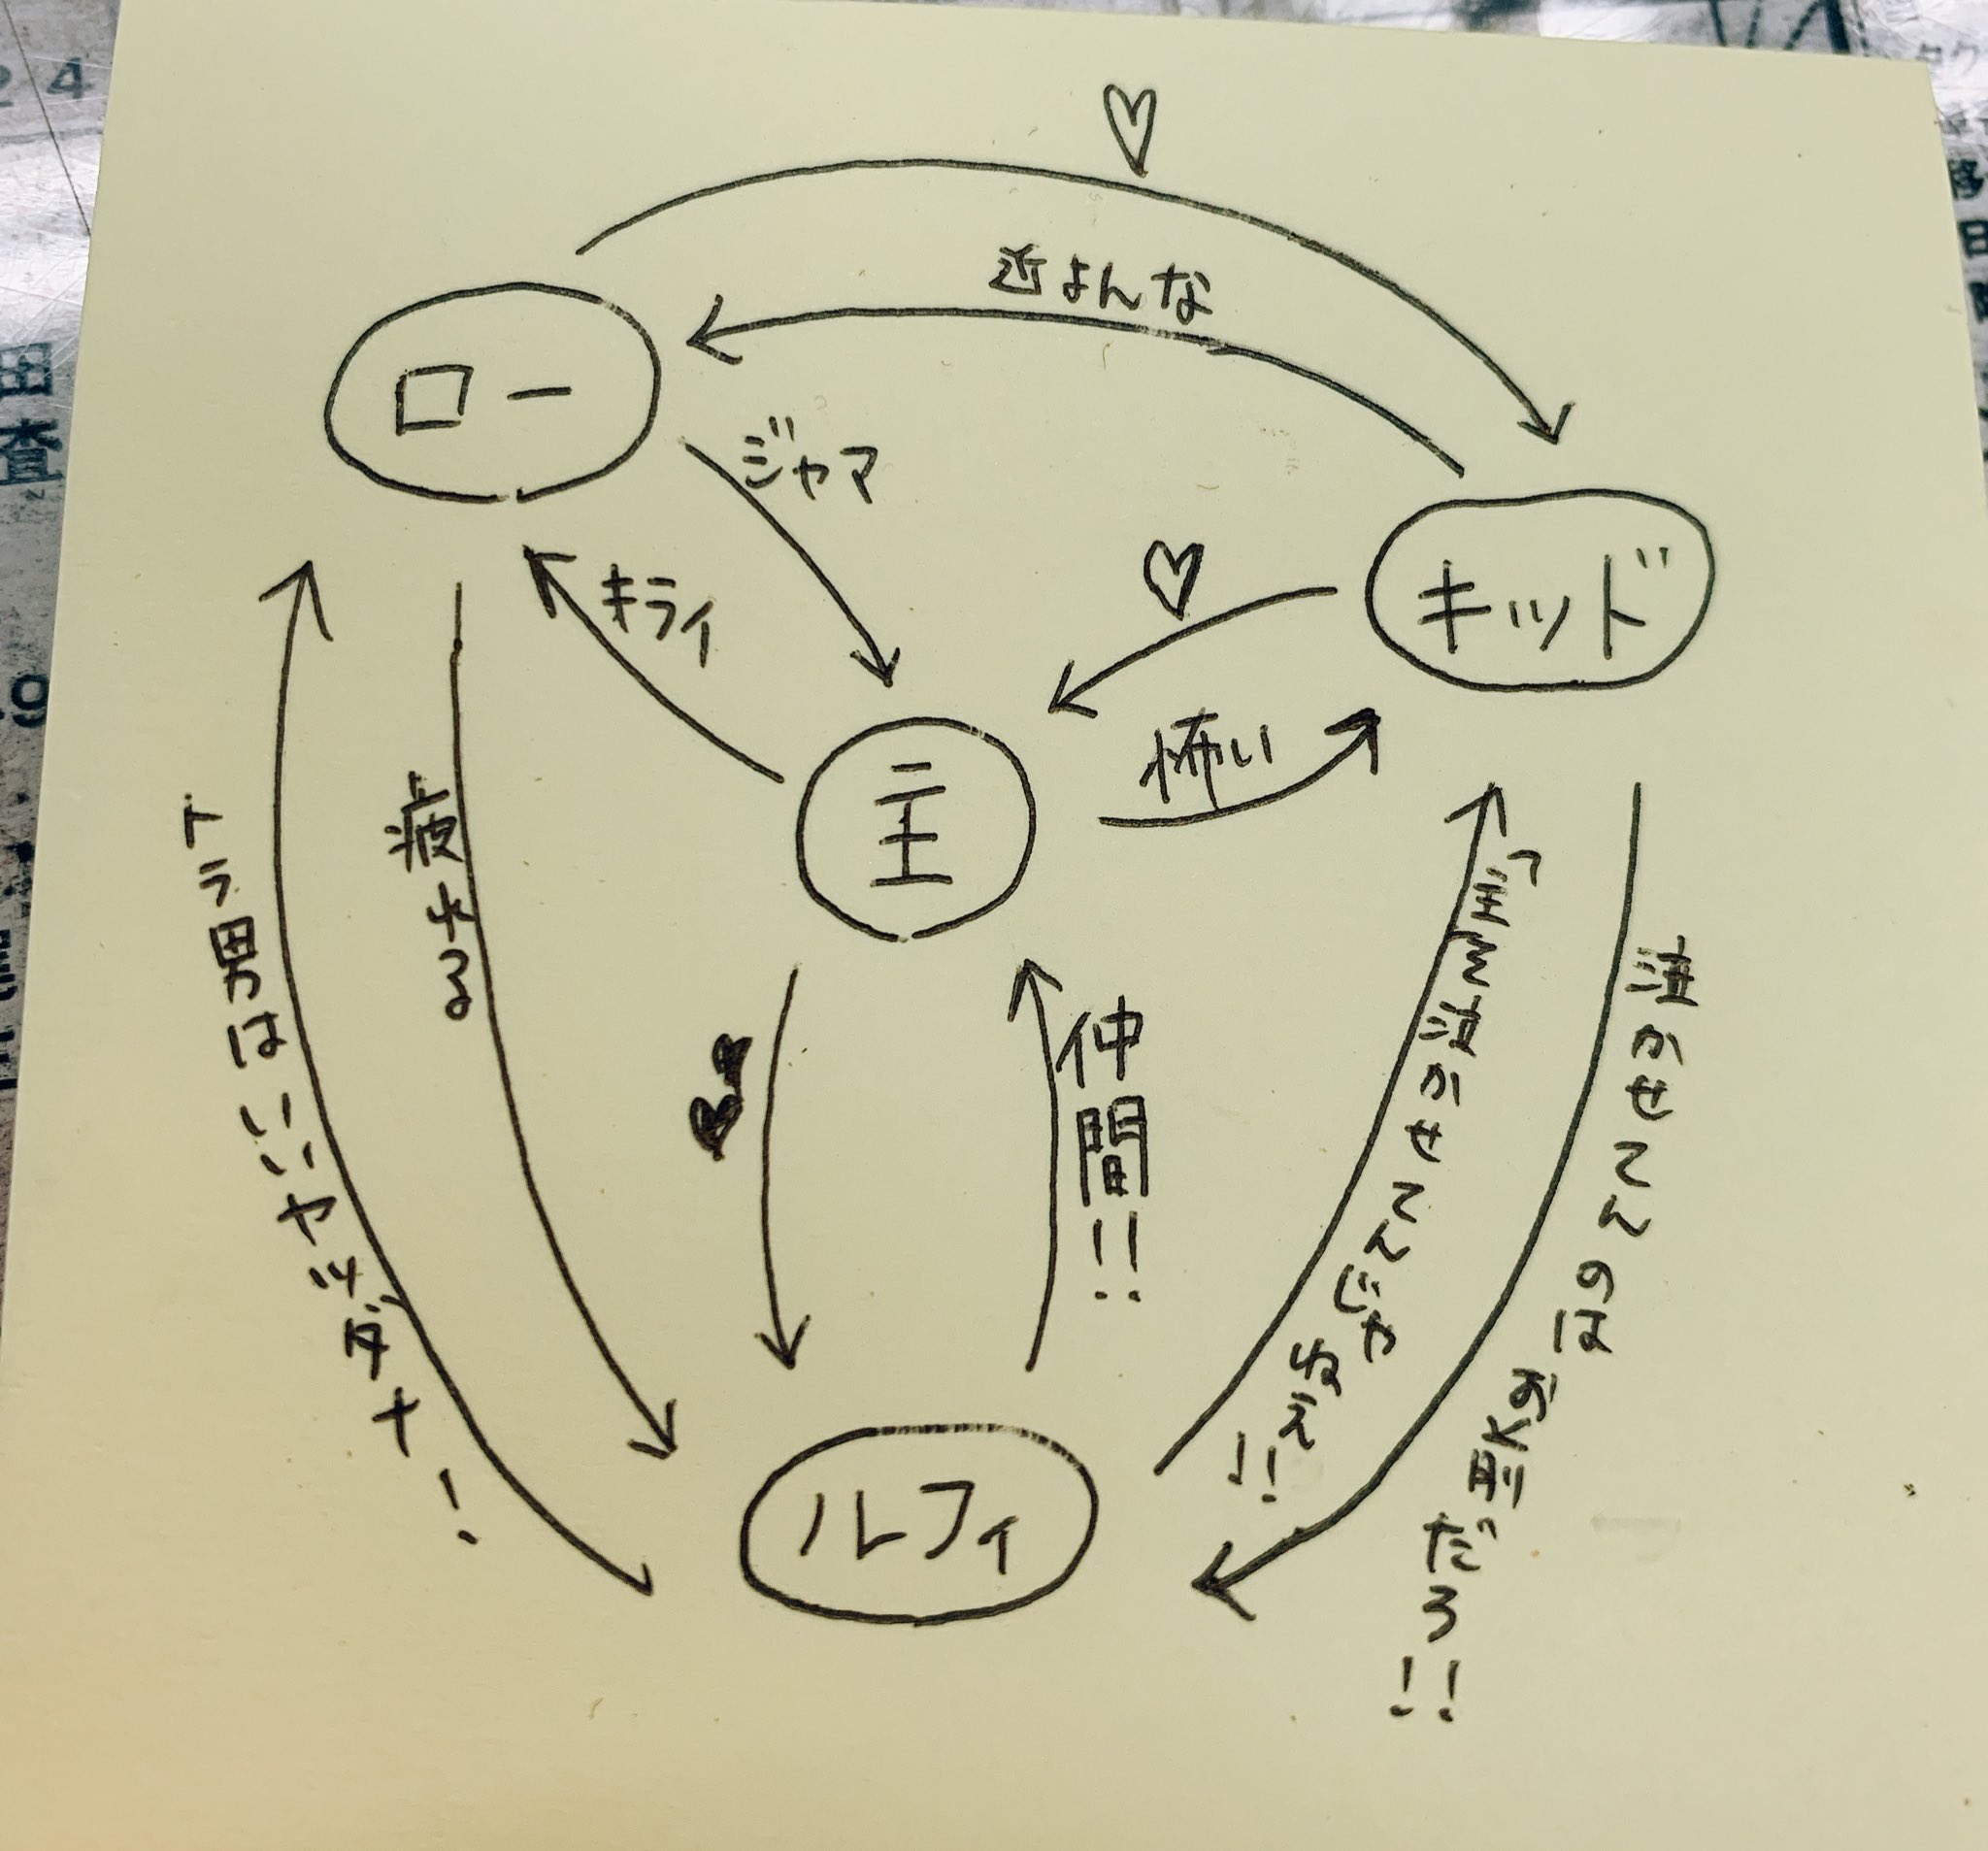 近よんな
ロー
ジャマ
キッド
キライ
怖い
主
トラ男はいいヤツダナ!
疲れる
仲間!!
主を泣かせてんじゃねえ!!
泣かせてんのはお前だろ!!
ルフィ
24
田
査
9
移
日